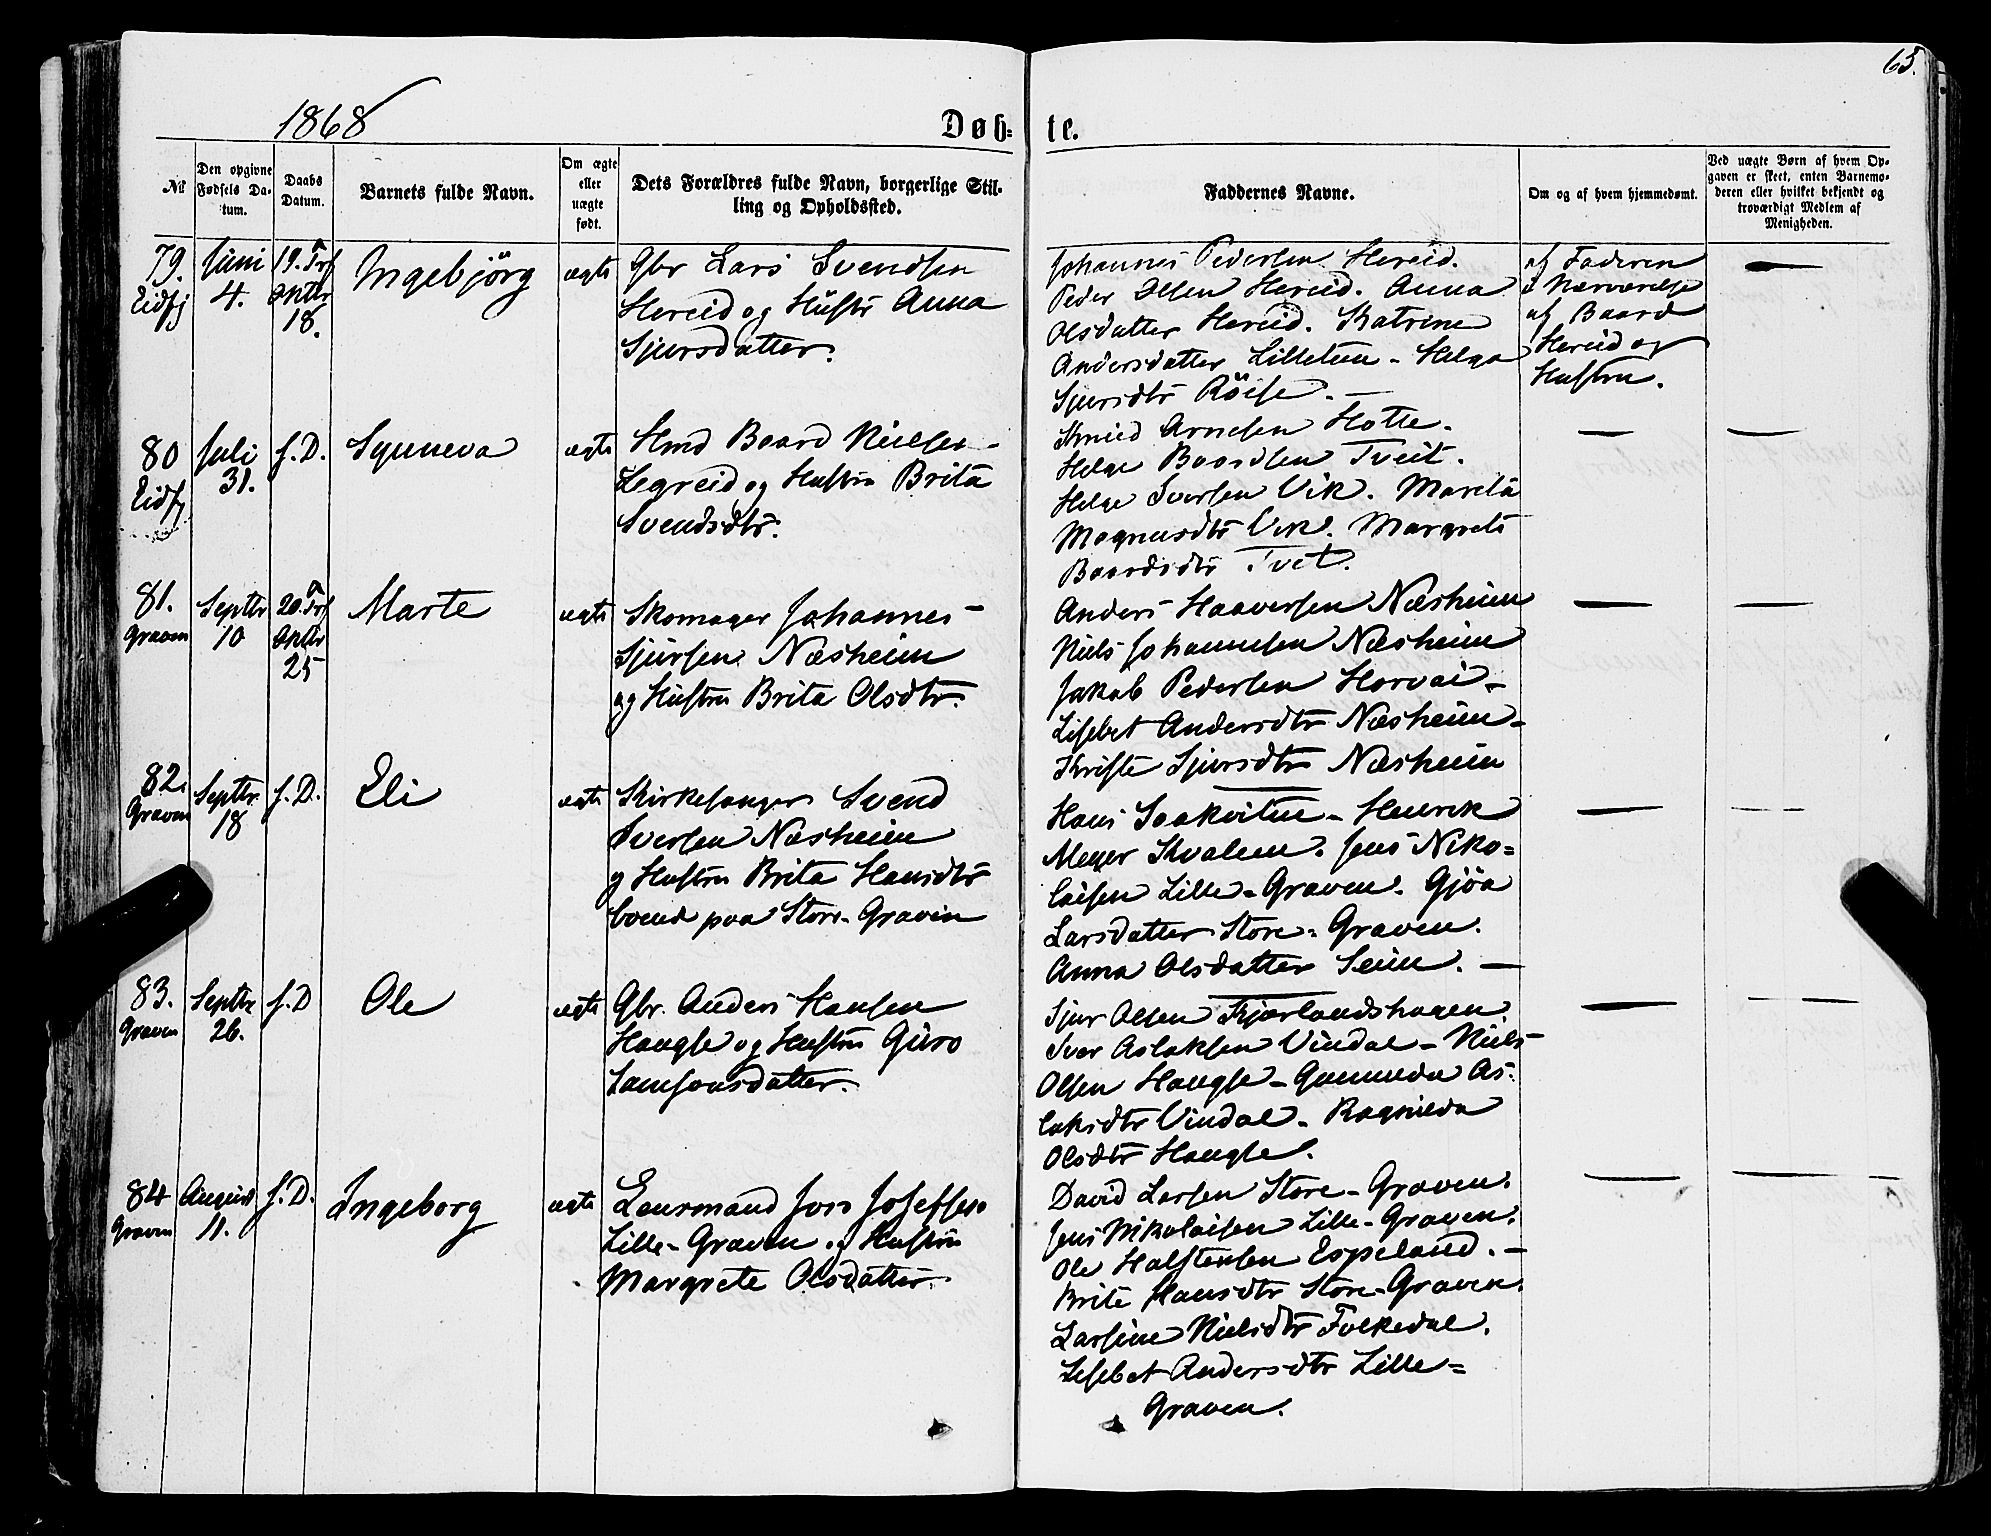 65.
1868
Døb- te.
No
Den opgivne Fødsels Datum.
Daabs Datum.
Barnets fulde Navn.
Om ægte eller uægte født.
Dets Forældres fulde Navn, borgerlige Stilling og Opholdssted.
Faddernes Navne.
Om og af hvem hjemmedømt.
Ved uægte Børn af hvem Opgaven er skeet, enten Barnemoderen eller hvilket bekjendt og troværdigt Medlem af Menigheden.
79.
Eidfj
Juni
4.
19. Trf
Oktbr
18.
Ingebjörg
ægte
Gbr Lars Svendsen
Hereid og Hustr Anna
Sjursdatter.
Johannes Pedersen Hereid.
Peder Olsen Hereid. Anna
Olsdatter Hereid. Katrine
Andersdatter Lilletun - Helga
Sjursdtr Röise. —
af Faderen
i Nærværelse
af Baard
Hereid og
Hustru.
80
Eidfj
Juli
31.
s. D.
Synneva
ægte
Hmd Baard Nielsen -
Legreid og Hustru Brita
Svendsdtr.
Knud Arnesen Hotle.
Helge Baardsen Tveit.
Helge Iversen Vik. Marita
Magnusdtr Vik. Margreta
Baardsdtr Tvet.
81.
Graven
Septbr
10
20. Trf
Oktbr
25
Marte
ægte
Skomager Johannes -
Sjursen Næsheim
og Hustru Brita Olsdtr.
Anders Haaversen Næsheim
Niels Johannesen Næsheim
Jakob Pedersen Horvei -
Lisbet Andersdtr Næsheim -
Kriste Sjursdtr Næsheim
82.
Graven
Septbr
18
s. D.
Eli
ægte
Kirkesanger Svend
Iversen Næsheim
og Hustru Brita Hansdtr
boende paa Store-Graven
Hans Saakvitne - Henrik
Meyer Kvalem. Jens Niko=
laisen Lille-Graven. Gjöa
Larsdatter Store-Graven.
Anna Olsdatter Seim. —
83.
Graven
Septbr
26.
s. D
Ole
ægte
Gbr. Anders Hansen
Haugse og Hustru Guro
Samsonsdatter.
Sjur Olsen Kjærlandshagen.
Iver Aslaksen Vindal - Niels
Olsen Haugse - Gunnveda As-
laksdtr Vindal - Ragnilda
Olsdtr Haugse.
84
Graven
August
11.
s. D.
Ingeborg
ægte
Leurmand Jon Josefsen
Lille-Graven og Hustru
Margrete Olsdatter
David Larsen Store-Graven.
Jens Nikolaisen Lille-Graven.
Ole Halstensen Espeland. —
Brite Hansdtr Store-Graven.
Larsine Nielsdtr Folkedal.
Lisebet Andersdtr Lille=
Graven.